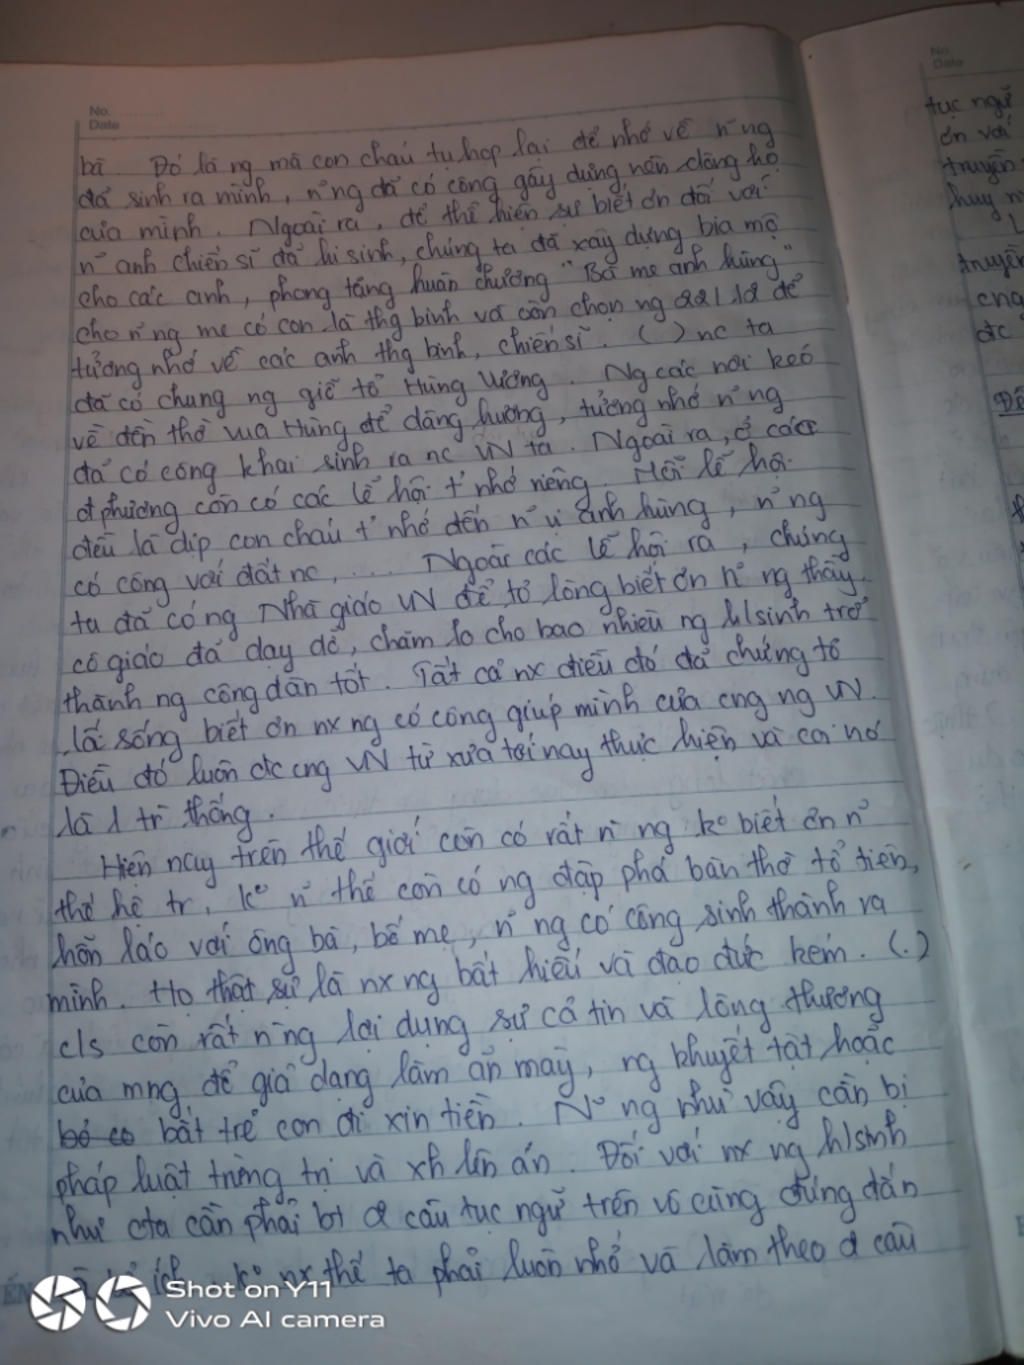 No.
Date
bà. Đó là ng mà con cháu tụ họp lại để nhớ về n~ng
đã sinh ra mình, n~ng đã có công gây dựng nên dòng họ
của mình. Ngoài ra, để thể hiện sự biết ơn đối với
n~ anh chiến sĩ đã hi sinh, chúng ta đã xây dựng bia mộ
cho các anh, phong tặng huân chương "Bà mẹ anh hùng"
cho n~ng mẹ có con là thg binh và còn chọn ng 22/12 để
tưởng nhớ về các anh thg binh, chiến sĩ. ( ) nc ta
đã có chung ng giỗ tổ Hùng Vương. Ng các nơi kéo
về đền thờ vua Hùng để dâng hương, tưởng nhớ n~ng
đã có công khai sinh ra nc VN ta. Ngoài ra, ở các
đphương còn có các lễ hội t' nhớ riêng. Mỗi lễ hội
đều là dịp con cháu t' nhớ đến n~ vị anh hùng, n~ng
có công với đất nc, ... Ngoài các lễ hội ra, chúng
ta đã có ng Nhà giáo VN để tỏ lòng biết ơn n~ ng thầy
cô giáo đã dạy dỗ, chăm lo cho bao nhiêu ng h/sinh trở
thành ng công dân tốt. Tất cả nx điều đó đã chứng tỏ
lối sống biết ơn nx ng có công giúp mình của cng ng VN.
Điều đó luôn đc cng VN từ xưa tới nay thực hiện và coi nó
là 1 tr̀ thống.
Hiện nay trên thế giới còn có rất ǹ ng kº biết ơn n~
thế hệ tr. kº n~ thế còn có ng đập phá bàn thờ tổ tiên,
hỗn láo với ông bà, bố mẹ, n~ ng có công sinh thành ra
mình. Họ thật sự là nx ng bất hiếu và đạo đức kém. (.)
c/s còn rất ǹ ng lợi dụng sự cả tin và lòng thương
của mng để giả dạng làm ăn mày, ng khuyết tật hoặc
bắt trẻ con đi xin tiền. N~ ng như vậy cần bị
pháp luật trừng trị và xh lên án. Đối với nx ng h/sinh
như cta cần phải bt 2 câu tục ngữ trên vô cùng đúng đắn
kº nx thế ta phải luôn nhớ và làm theo 2 câu
No.
Date
tục ngữ
ơn với
truyền
huy
truyền
cng
đc
Shot on Y11
Vivo AI camera